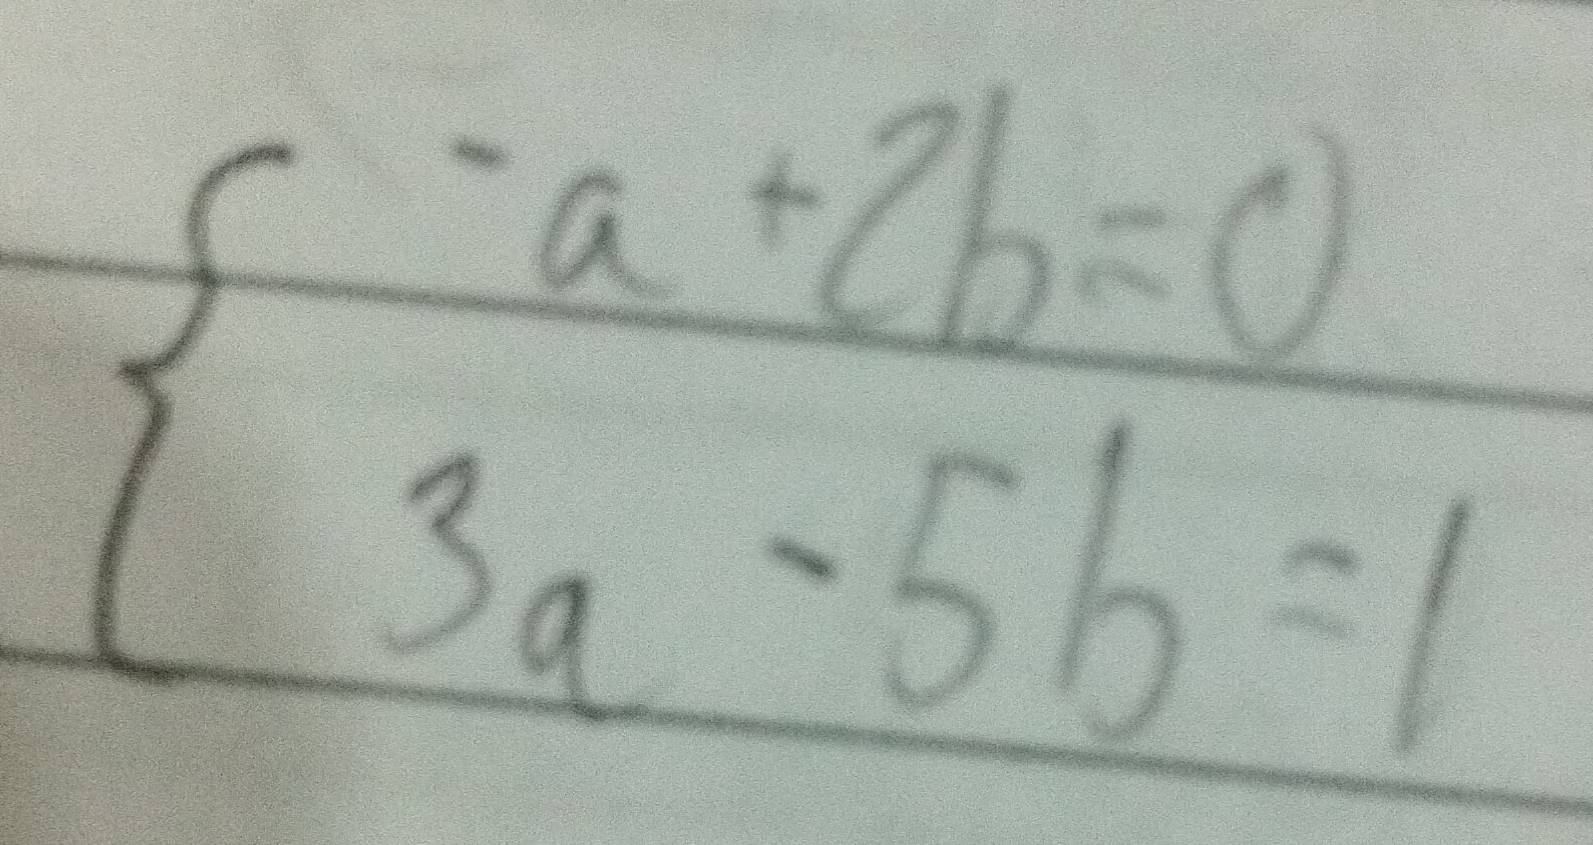 -a + 2b = 0
3a - 5b = 1